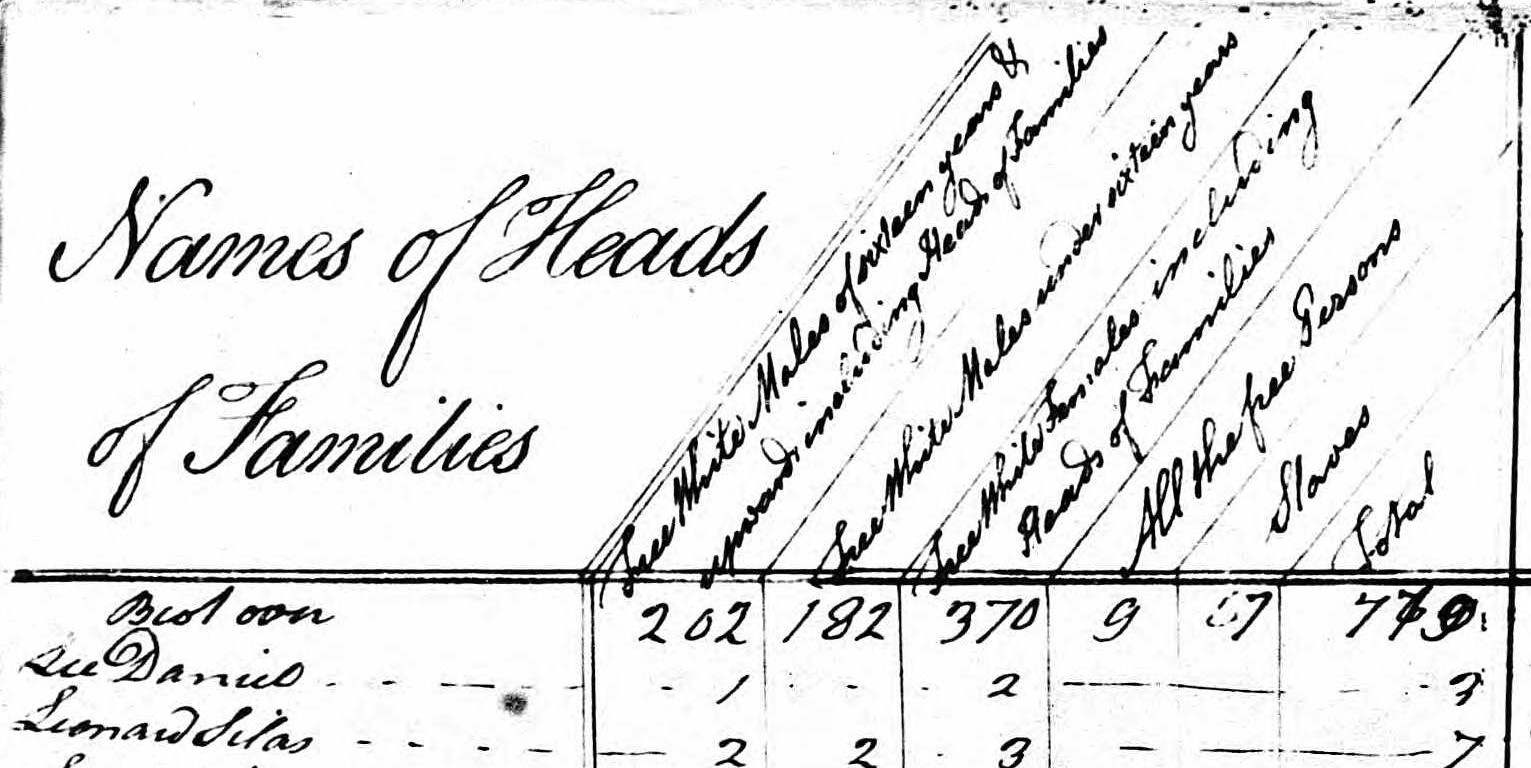 Names of Heads
of Families
Free White Males of sixteen years &
upwards including Heads of Families
Free White Males under sixteen years
Free White Females including
Heads of Families
All the free Persons
Slaves
Total
Brot over 202 182 370 9 7
Lee Daniel 1 2 3
Leonard Silas 2 2 3 7